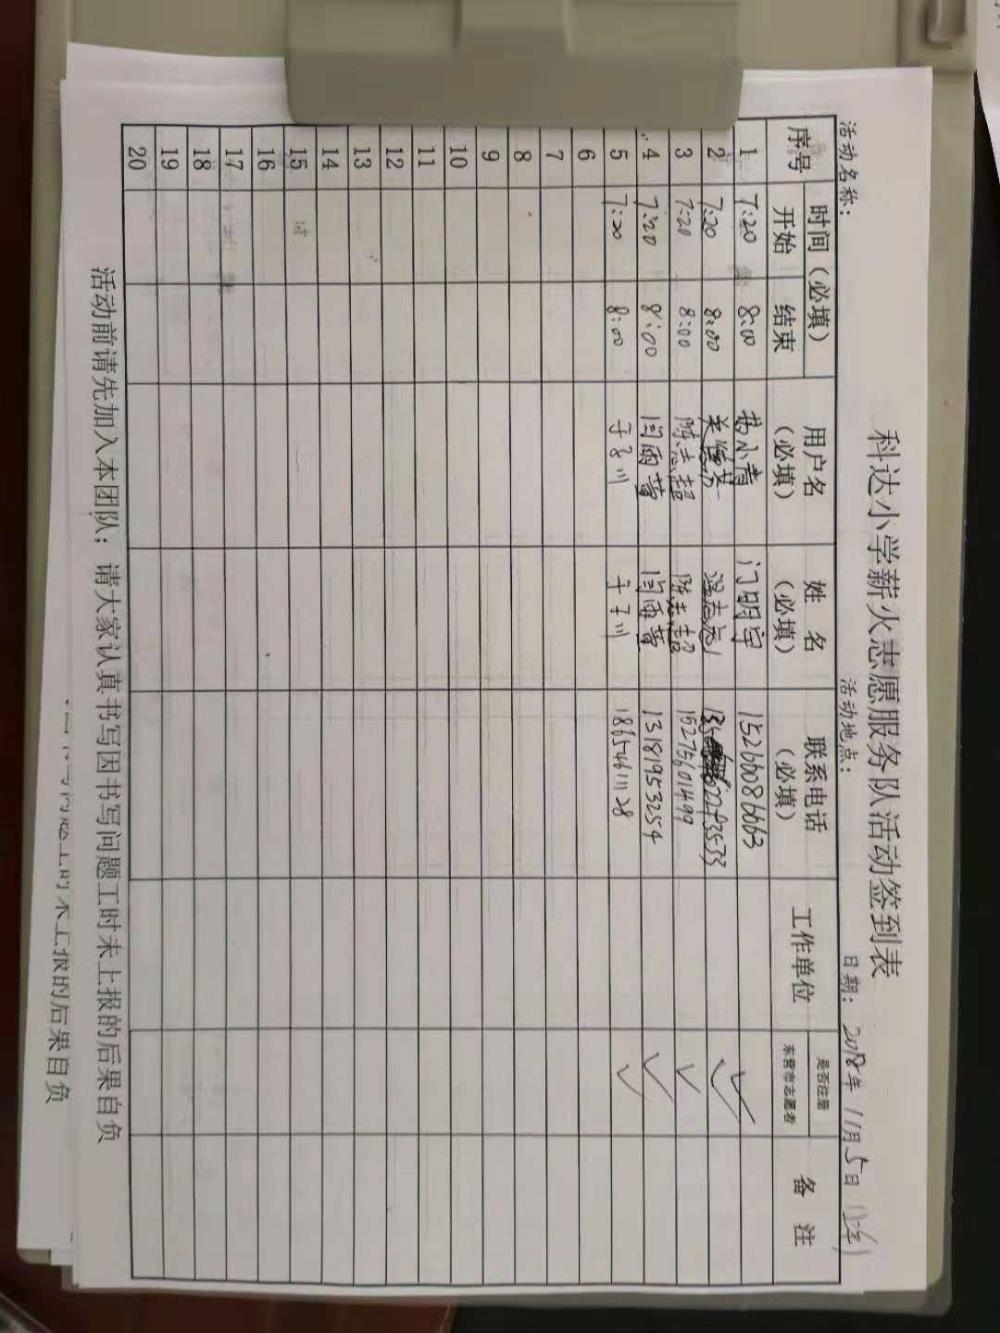 科达小学薪火志愿服务队活动签到表
活动名称： 活动地点： 日期：2018年11月5日
序号 时间（必填） 用户名（必填） 姓名（必填） 联系电话（必填） 工作单位 是否注册东营市志愿者 备注
开始 结束
1 7:20 8:00 小青 门明宇 15266086663 ✓
2 7:20 8:00 ✓
3 7:20 8:00 陈志超 陈志超 15275601499 ✓
4 7:20 8:00 闫雨萱 闫雨萱 13181953254 ✓
5 7:20 8:00 于子川 于子川 18654611128 ✓
6
7
8
9
10
11
12
13
14
15
16
17
18
19
20
活动前请先加入本团队；请大家认真书写因书写问题工时未上报的后果自负
的后果自负